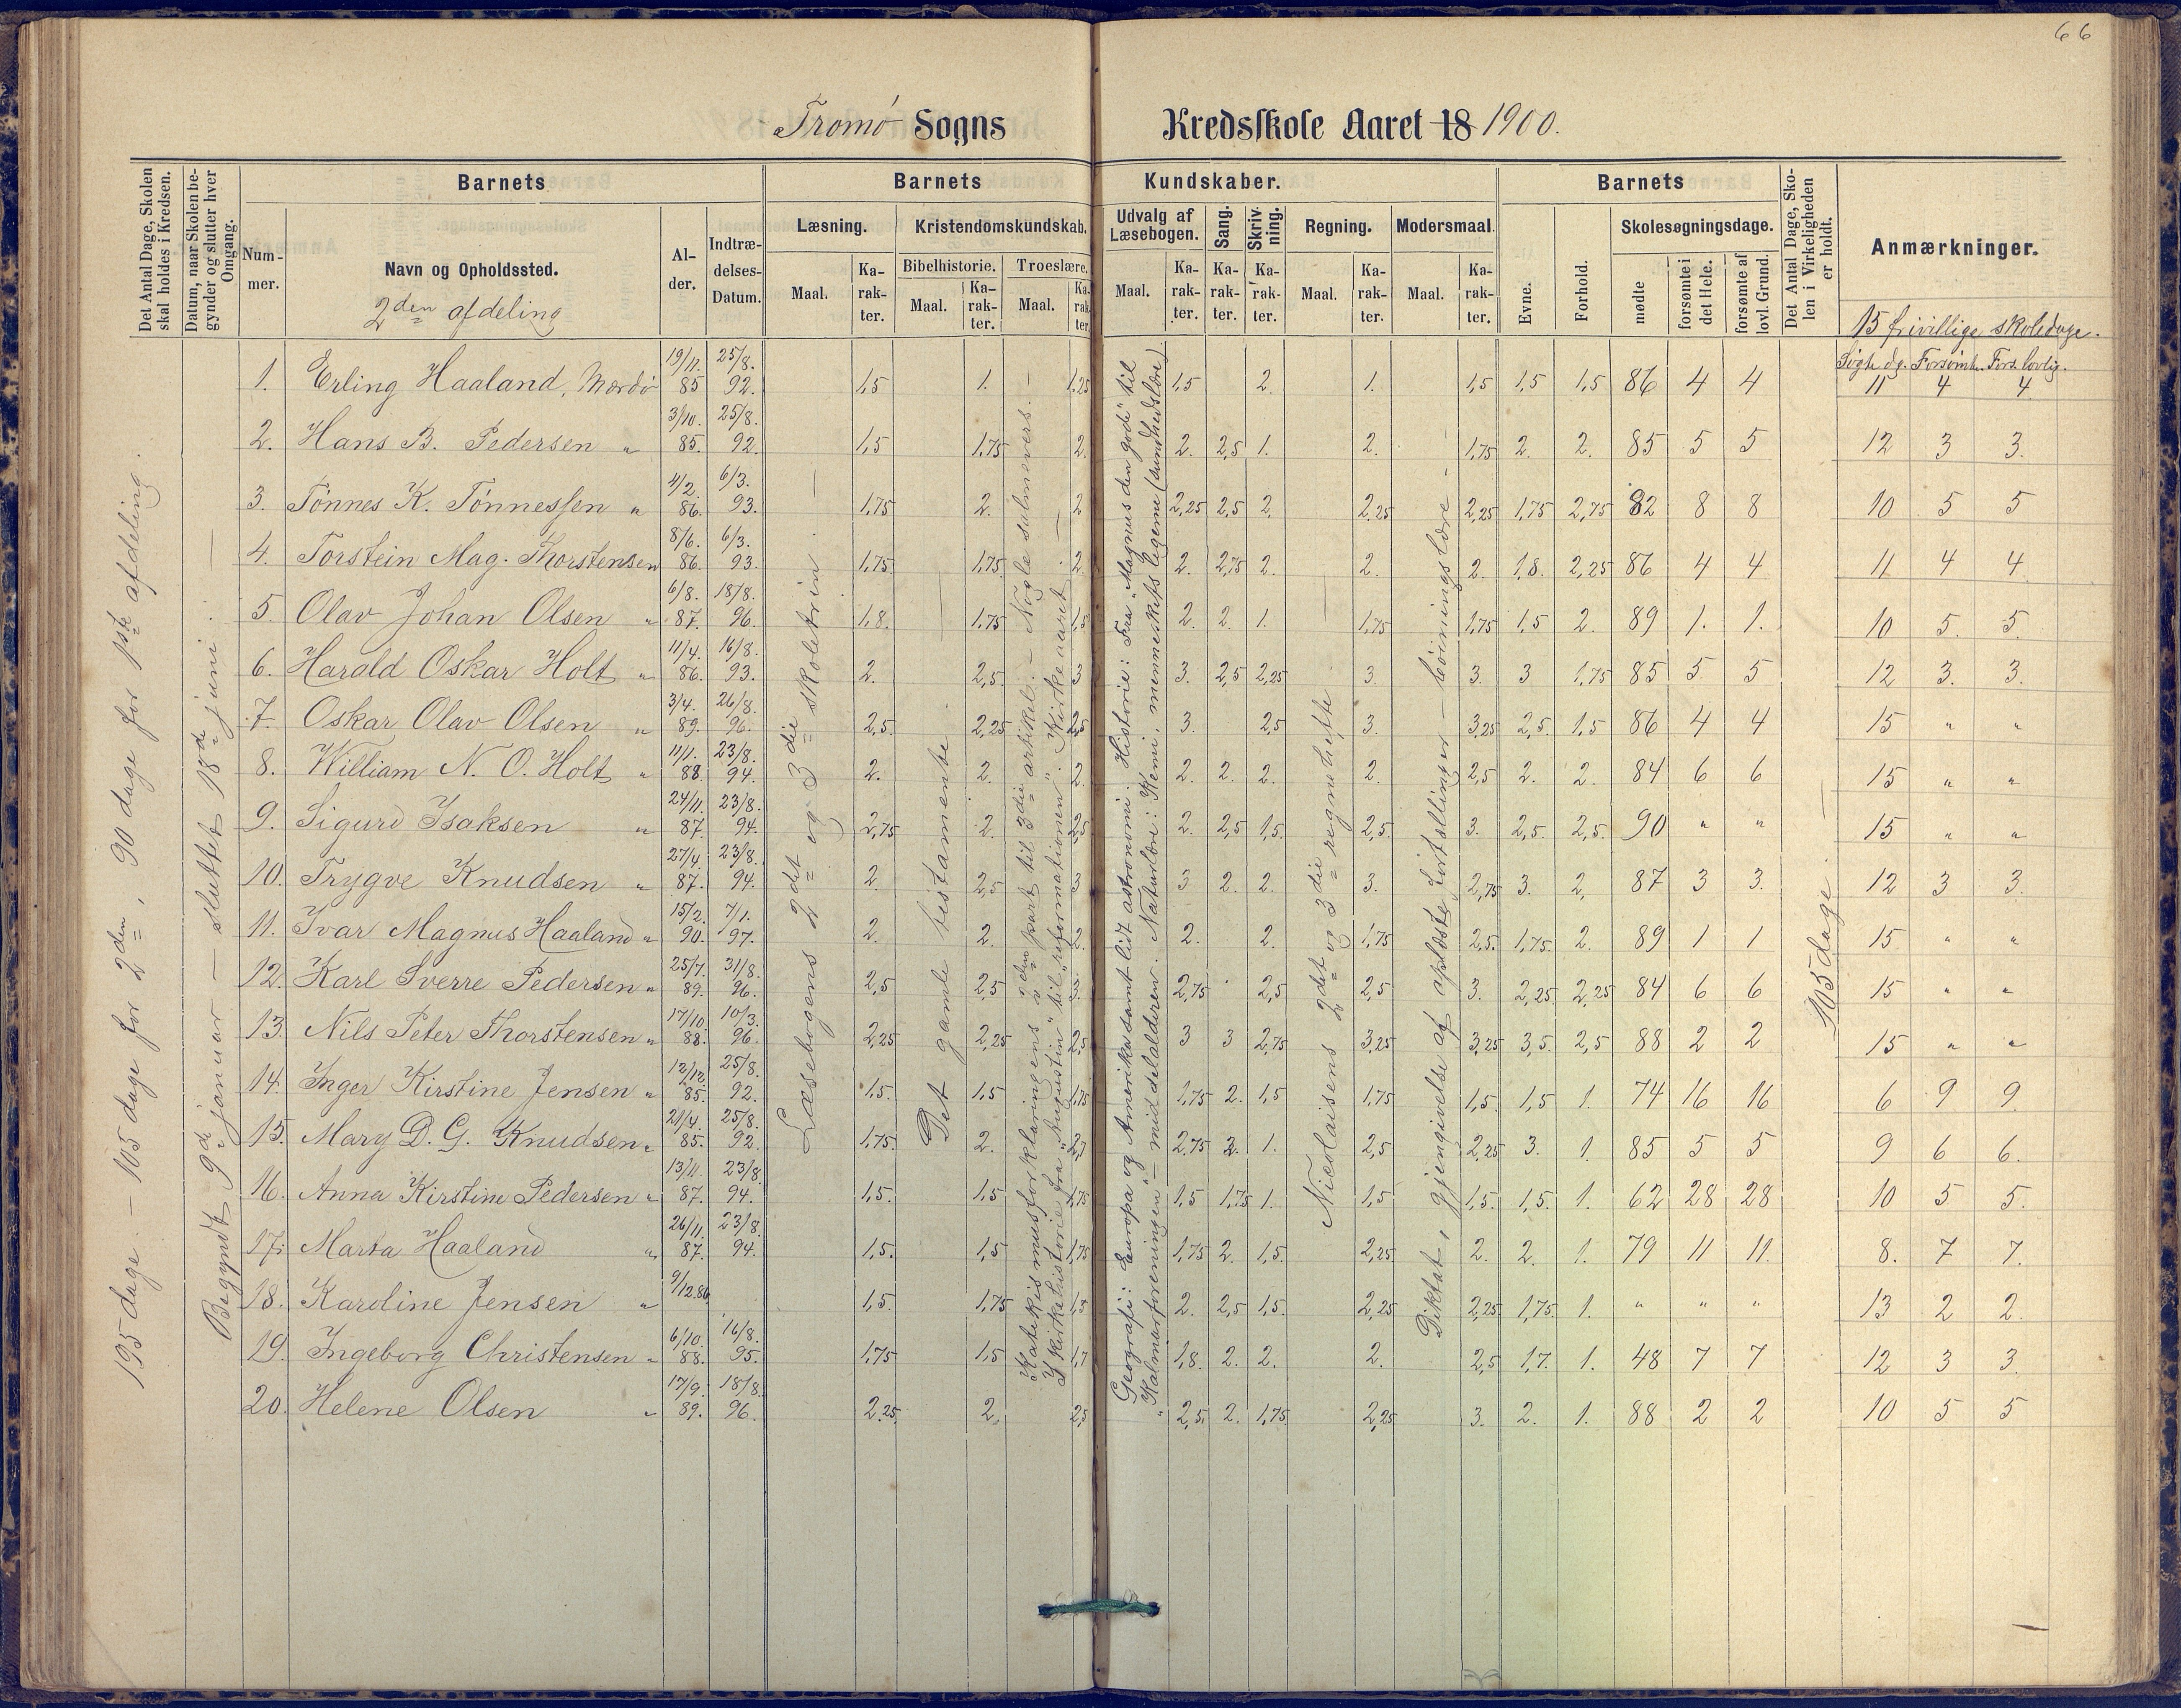 66
Tromø Sogns Kredsskole Aaret 18 1900.
Det Antal Dage, Skolen skal holdes i Kredsen.
Datum, naar Skolen begynder og slutter hver Omgang.
Barnets
Nummer.
Navn og Opholdssted.
2den afdeling
Alder.
Indtrædelses-Datum.
Barnets Kundskaber.
Læsning.
Maal.
Karakter.
Kristendomskundskab.
Bibelhistorie.
Maal.
Karakter.
Troeslære.
Maal.
Karakter.
Udvalg af Læsebogen.
Maal.
Karakter.
Sang.
Karakter.
Skrivning.
Karakter.
Regning.
Maal.
Karakter.
Modersmaal.
Maal.
Karakter.
Barnets
Evne.
Forhold.
Skolesøgningsdage.
mødte
forsømte i det Hele.
forsømte af lovl. Grund.
Det Antal Dage, Skolen i Virkeligheden er holdt.
Anmærkninger.
15 frivillige skoledage.
Søgte dg. Forsømte. Fors. lovlig.
195 dage. – 105 dage for 2den, 90 dage for 1ste afdeling.
Begyndt 9de januar – sluttet 18de juni.
Læsebogens 2det og 3die skoletrin.
Det gamle testamente.
Katekismusforklaringens 2den part til 3die artikel. – Nogle salmevers. –
Kirkehistorie fra "Augustin" til "reformationen". Kirkeaaret –
Geografi: Europa og Amerika samt lidt astronomi. Historie: Fra "Magnus den gode" til
"Kalmarforeningen" – middelalderen. Naturlære: Kemi, menneskets legeme (sundhedslære).
Nicolaisens 2det og 3die regnehefte
Diktat, gjengivelse af oplæste fortællinger – bøiningslære –
105 dage.
1. Erling Haaland, Mærdø 19/11. 85 25/8. 92. 1,5 1. 1,25 1,5 2. 1. 1,5 1,5 1,5 86 4 4 11 4 4
2. Hans B. Pedersen " 3/10. 85. 25/8. 92. 1,5 1,75 2. 2. 2,5 1. 2. 1,75 2. 2. 85 5 5 12 3 3.
3. Tønnes K. Tønnessen " 4/2. 86. 6/3. 93. 1,75 2. 2 2,25 2,5 2. 2,25 2,25 1,75 2,75 82 8 8 10 5 5
4. Torstein Mag. Thorstensen 8/6. 86. 6/3. 93. 1,75 1,75 2. 2. 2,75 2. 2. 2. 1,8. 2,25 86 4 4 11 4 4
5. Olav Johan Olsen " 6/8. 87. 18/8. 96. 1,8. 1,75 1,5 2. 2. 1. 1,75 1,75 1,5 2. 89 1. 1. 10 5. 5.
6. Harald Oskar Holt " 11/4. 86. 16/8. 93. 2. 2,5. 3 3. 2,5 2,25 3. 3. 3 1,75 85 5 5 12 3. 3.
7. Oskar Olav Olsen " 3/4. 89. 26/8. 96. 2,5. 2,25 2,5 3. 2,5 3. 3,25 2,5. 1,5 86 4 4 15 " "
8. William N. O. Holt " 11/1. 88. 23/8. 94. 2. 2. 2. 2. 2. 2. 2. 2,5 2. 2. 84 6 6 15 " "
9. Sigurd Isaksen " 24/11. 87. 23/8. 94. 2,75 2. 2,5 2. 2,5 1,5. 2,5. 3. 2,5. 2,5. 90 " " 15 " "
10. Trygve Knudsen " 27/4. 87. 23/8. 94. 2. 2,5 3 3 2. 2. 3. 2,75 3. 2, 87 3 3. 12 3 3.
11. Ivar Magnus Haaland " 15/2. 90. 7/1. 97. 2. 2. 2. 2. 2. 1,75 2,5. 1,75. 2. 89 1 1 15 " "
12. Karl Sverre Pedersen " 25/7. 89. 31/8. 96. 2,5 2,5 2,75 2,5 2,5 3. 2,25 2,25 84 6 6 15 " "
13. Nils Peter Thorstensen " 17/10. 88. 10/3. 96. 2,25 2,25 2,5 3 3 2,75 3,25 3,25 3,5. 2,5 88 2 2 15 " "
14. Inger Kirstine Jensen " 12/12. 85. 25/8. 92. 1,5. 1,5 1,75 1,75 2. 1,5 1,75 1,5. 1,5 1. 74 16 16 6 9 9.
15. Mary D. G. Knudsen " 21/4. 85. 25/8. 92. 1,75. 2. 2,75 2. 1. 2,5 2,25 3. 1. 85 5 5 9 6 6.
16. Anna Kirstine Pedersen " 13/11. 87. 23/8. 94. 1,5. 1,5 1,75 1,5 1,75 1. 1,5 1,5. 1,5. 1. 62 28 28 10 5 5.
17. Marta Haaland " 26/11. 87. 23/8. 94. 1,5. 1,5 1,75 1,75 2. 1,5. 2,25 2. 2. 1. 79 11 11. 8. 7 7.
18. Karoline Jensen " 9/12.86 1,5. 1,75 1,5 2. 2,5 1,5. 2,25 2,25 1,75. 1. " " " 13 2 2.
19. Ingeborg Christensen " 6/10. 88. 16/8. 95. 1,75 1,5 1,7 1,8. 2. 2. 2. 2,5 1,7. 1. 48 7 7 12 3 3.
20. Helene Olsen " 17/9. 89. 18/8. 96. 2,25 2. 2,5 2,5. 2. 1,75 2,25 3. 2. 1. 88 2 2 10 5 5